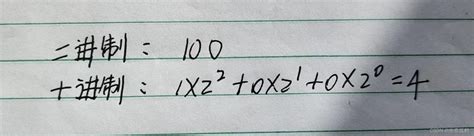 二进制: 100
十进制: 1×2² + 0×2¹ + 0×2⁰ = 4